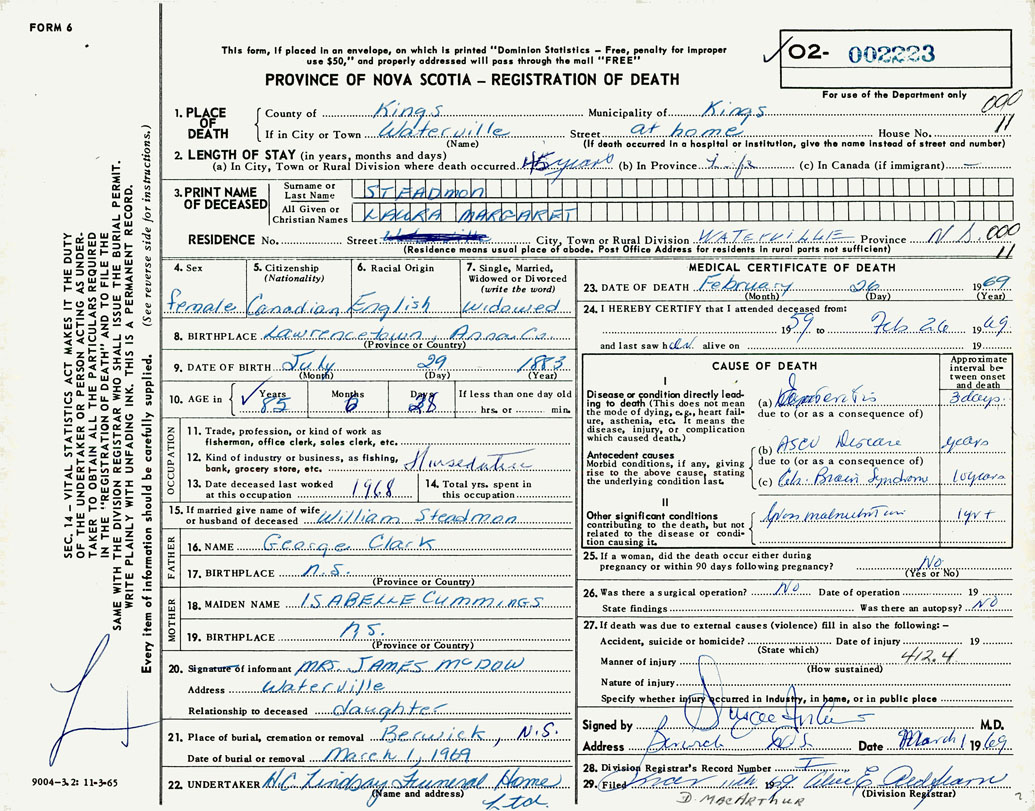 FORM 6
This form, if placed in an envelope, on which is printed "Dominion Statistics – Free, penalty for improper
use $50," and properly addressed will pass through the mail "FREE"
PROVINCE OF NOVA SCOTIA – REGISTRATION OF DEATH
✓ 02- 002223
For use of the Department only
000
11
1. PLACE OF DEATH
County of Kings Municipality of Kings
If in City or Town Waterville Street at home House No.
(Name) (If death occurred in a hospital or institution, give the name instead of street and number)
2. LENGTH OF STAY (in years, months and days)
(a) In City, Town or Rural Division where death occurred 45 years (b) In Province Life (c) In Canada (if immigrant) —
3. PRINT NAME OF DECEASED
Surname or Last Name STEADMON
All Given or Christian Names LAURA MARGARET
RESIDENCE No. Street City, Town or Rural Division WATERVILLE Province N.S. 000
(Residence means usual place of abode. Post Office Address for residents in rural parts not sufficient) 11
4. Sex female
5. Citizenship (Nationality) Canadian
6. Racial Origin English
7. Single, Married, Widowed or Divorced (write the word) Widowed
8. BIRTHPLACE Lawrencetown, Anna Co.
(Province or Country)
9. DATE OF BIRTH July 29 1883
(Month) (Day) (Year)
10. AGE in ✓ Years 85 Months 6 Days 28 If less than one day old hrs. or min.
OCCUPATION
11. Trade, profession, or kind of work as
fisherman, office clerk, sales clerk, etc.
12. Kind of industry or business, as fishing,
bank, grocery store, etc.
13. Date deceased last worked
at this occupation 1968
14. Total yrs. spent in
this occupation
15. If married give name of wife
or husband of deceased William Steadmon
FATHER
16. NAME George Clark
17. BIRTHPLACE N.S.
(Province or Country)
MOTHER
18. MAIDEN NAME ISABELLE CUMMINGS
19. BIRTHPLACE N.S.
(Province or Country)
20. Signature of informant MRS JAMES McDOW
Address Waterville
Relationship to deceased daughter
21. Place of burial, cremation or removal Berwick, N.S.
Date of burial or removal March 1, 1969
22. UNDERTAKER H.C. Lindsay Funeral Home
(Name and address) Ltd.
MEDICAL CERTIFICATE OF DEATH
23. DATE OF DEATH February 26 1969
(Month) (Day) (Year)
24. I HEREBY CERTIFY that I attended deceased from:
1959 to Feb 26 1969
and last saw alive on 19
CAUSE OF DEATH
Approximate interval between onset and death
I
Disease or condition directly lead-
ing to death (This does not mean
the mode of dying, e.g., heart fail-
ure, asthenia, etc. It means the
disease, injury, or complication
which caused death.)
(a) 3 days
due to (or as a consequence of)
Antecedent causes
Morbid conditions, if any, giving
rise to the above cause, stating
the underlying condition last.
(b) ASCV Disease years
due to (or as a consequence of)
(c) Brain Syndrome 10 years
II
Other significant conditions
contributing to the death, but not
related to the disease or condi-
tion causing it.
Gross malnutrition 1 yr +
25. If a woman, did the death occur either during
pregnancy or within 90 days following pregnancy? No
(Yes or No)
26. Was there a surgical operation? NO Date of operation 19
State findings Was there an autopsy? NO
27. If death was due to external causes (violence) fill in also the following: –
Accident, suicide or homicide? Date of injury 19
(State which)
Manner of injury 412.4
(How sustained)
Nature of injury
Specify whether injury occurred in industry, in home, or in public place
Signed by M.D.
Address Berwick N.S. Date March 1 1969
28. Division Registrar's Record Number
29. Filed 1969
(Division Registrar)
D. MACARTHUR
SEC. 14 – VITAL STATISTICS ACT MAKES IT THE DUTY
OF THE UNDERTAKER OR PERSON ACTING AS UNDER-
TAKER TO OBTAIN ALL THE PARTICULARS REQUIRED
IN THE "REGISTRATION OF DEATH" AND TO FILE THE
SAME WITH THE DIVISION REGISTRAR WHO SHALL ISSUE THE BURIAL PERMIT.
WRITE PLAINLY WITH UNFADING INK. THIS IS A PERMANENT RECORD.
Every item of information should be carefully supplied. (See reverse side for instructions.)
9004-3.2: 11-3-65